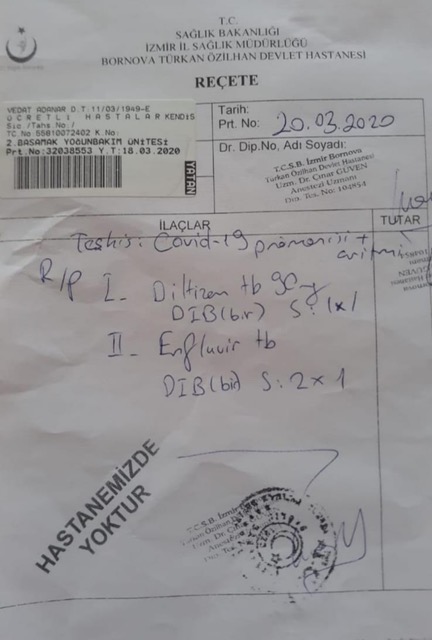 T.C.
SAĞLIK BAKANLIĞI
İZMİR İL SAĞLIK MÜDÜRLÜĞÜ
BORNOVA TÜRKAN ÖZİLHAN DEVLET HASTANESİ
REÇETE
VEDAT ADANAR D.T:11/03/1949-E
ÜCRETLİ HASTALAR KENDİS
Sic./Tahs No:/
TC.No 55810072402 K.No:
2.BASAMAK YOĞUNBAKIM ÜNİTESİ
Prt.No:32038553 Y.T:18.03.2020
YATAN
Tarih:
Prt. No: 20.03.2020
Dr. Dip.No, Adı Soyadı:
T.C.S.B. İzmir Bornova
Türkan Özilhan Devlet Hastanesi
Uzm. Dr. Çınar GÜVEN
Anestezi Uzmanı
Dip. Tes. No: 104854
İLAÇLAR
TUTAR
Teshis: Covid-19 pnömonisi + aritmi
R/p I- Diltizem tb 90
DIB(bir) S: 1x1
II- Enfluvir tb
DIB(bir) S: 2x1
HASTANEMİZDE
YOKTUR
T.C.S.B. İzmir
Uzm. Dr.